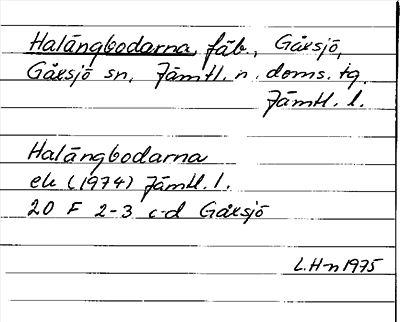 Halängbodarna, fäb., Gåxsjö,
Gåxsjö sn, Jämtl. n. doms. tg.
Jämtl. l.
Halängbodarna
ek (1974) Jämtl. l.
20 F 2-3 c-d Gåxsjö
L.H-n 1975